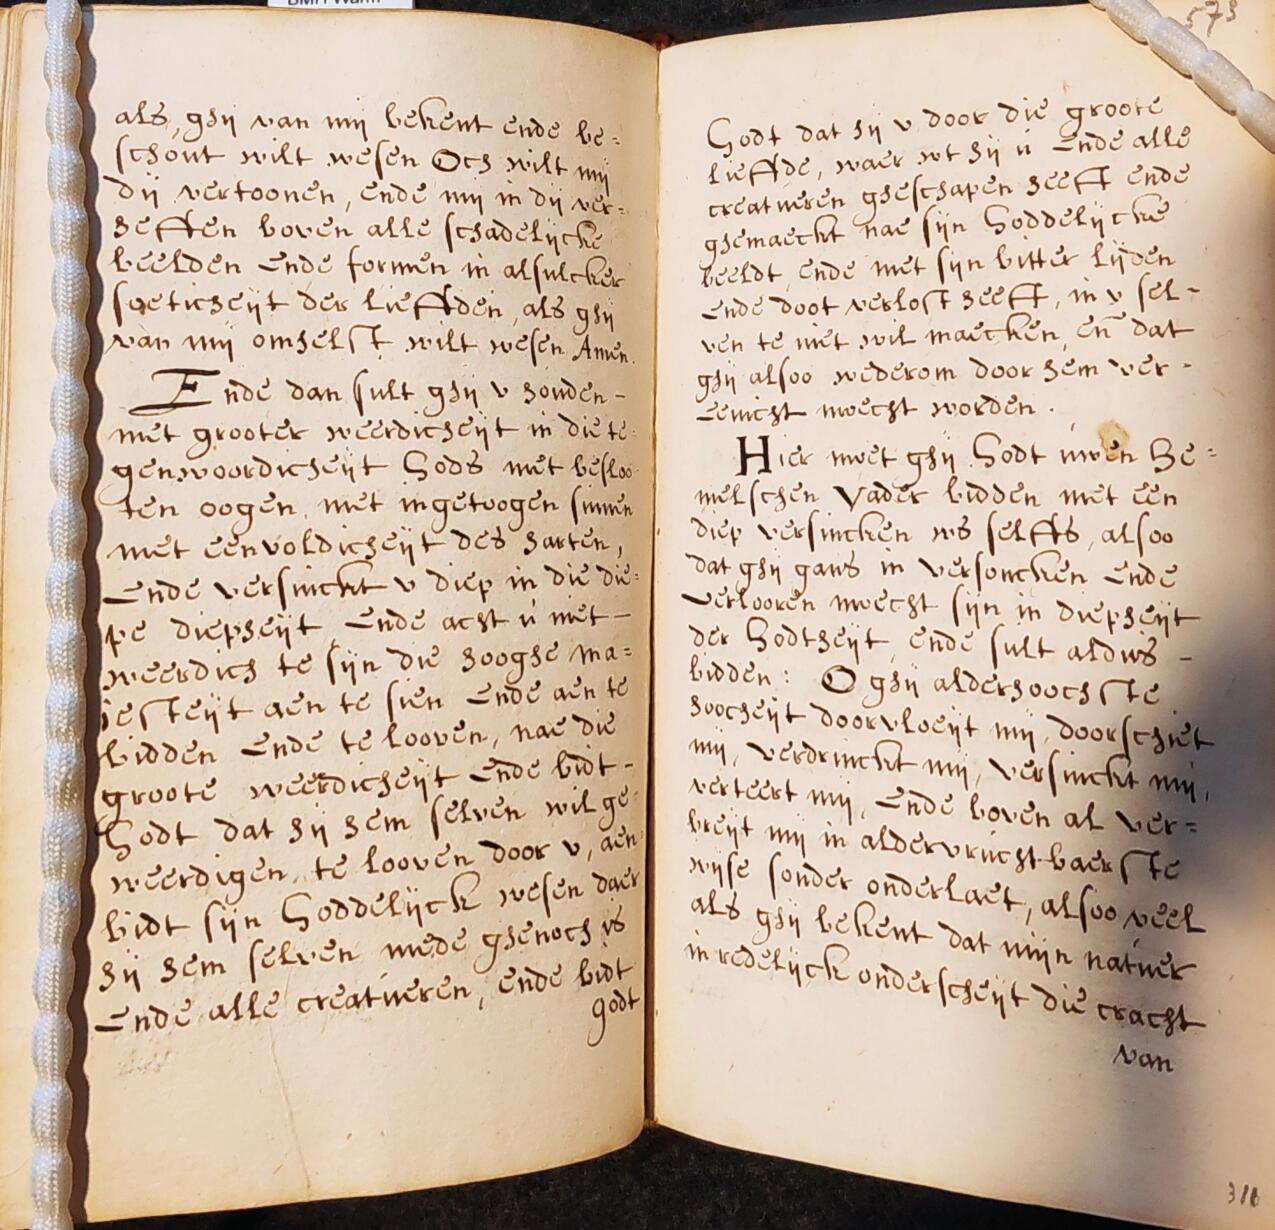 als, ghij van mij bekent ende be=
schout wilt wesen Och wilt mij
dij vertoonen, ende mij in dij ver=
heffen boven alle schadelijcke
beelden ende formen in alsulcker
soeticheijt der lieffden, als ghij
van mij omhelst wilt wesen Amen.
Ende dan sult ghij v houden-
met grooter weerdicheijt in die te=
genwoordicheijt Gods met besloo
ten oogen, met ingetoogen sinnen
met eenvoldicheijt des harten,
Ende versinckt v diep in die die=
pe diepheijt Ende acht ú niet-
weerdich te sijn die hooghe ma=
jesteijt aen te sien Ende aen te
bidden Ende te looven, nae die
groote weerdicheijt Ende bidt-
Godt dat hij hem selven wil ge=
weerdigen, te looven door v, aen
bidt sijn Goddelijck wesen daer
hij hem selven mede ghenoch is
Ende alle creatúeren, ende bidt
godt
573
Godt dat hij v door die groote
lieffde, waer wt hij ú Ende alle
creatueren gheschapen heeft ende
ghemaeckt nae sijn Goddelijcke
beeldt, ende met sijn bitter lijden
Ende doot verlost heeft, in v sel-
ven te niet wil maecken, en̄ dat
ghij alsoo wederom door hem ver-
Eenicht moecht worden.
Hier moet ghij Godt úwen He=
melschen Vader bidden met een
diep versincken ws selffs, alsoo
dat ghij gans in versoncken Ende
Verlooren moecht sijn in diepheijt
der Godtheijt, ende sult aldús-
bidden: O ghij alderhoochste
hoocheijt doorvloeijt mij, doorschiet
mij, verdrinckt mij, versinckt mij,
verteert mij, Ende boven al ver=
breijt mij in aldervrúchtbaerste
wijse sonder onderlaet, alsoo veel
als ghij bekent dat mijn natúer
in redelijck onderscheijt die cracht
van